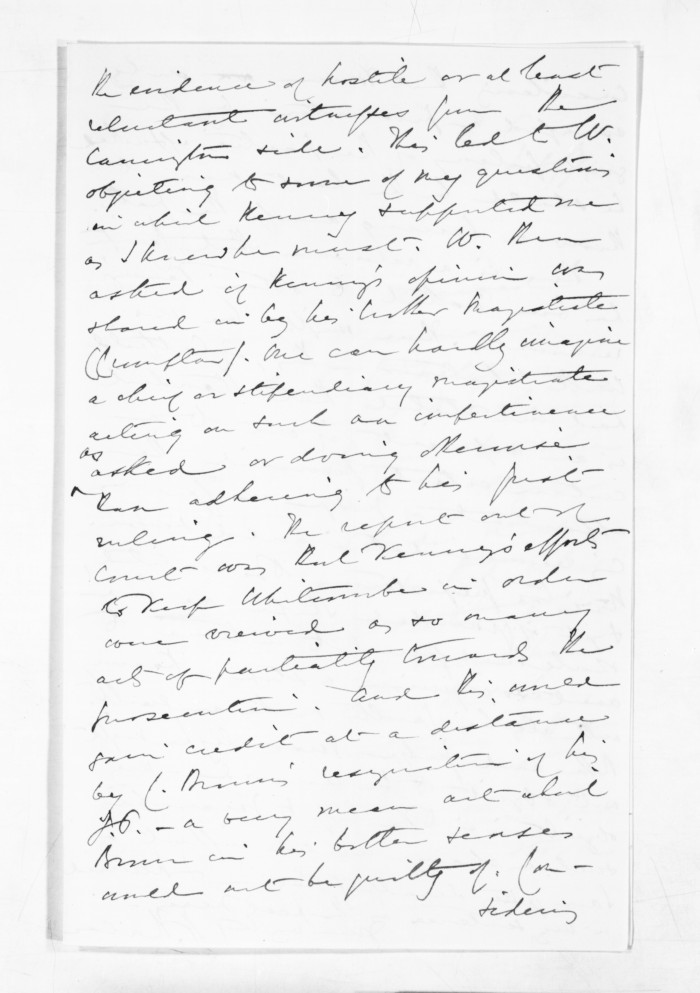 the evidence of hostile or at least
reluctant witnesses from the
Carrington side. This led to W.
objecting to some of my questions
in which Kenny supported me
as I knew he must. W. then
asked if Kenny's opinion was
shared in by his brother Magistrate
(Crompton). One can hardly imagine
a chief or stipendiary magistrate
acting on such an impertinence
as
asked or doing otherwise
than adhering to his first
ruling. The report out of
Court was that Kenny's efforts
to keep Whitcombe in order
were viewed as so many
acts of partiality towards the
prosecution. And this would
gain credit at a distance
by C. Brown's resignation of his
J.P. – a very mean act which
Brown in his better senses
would not be guilty of. Con–
sidering